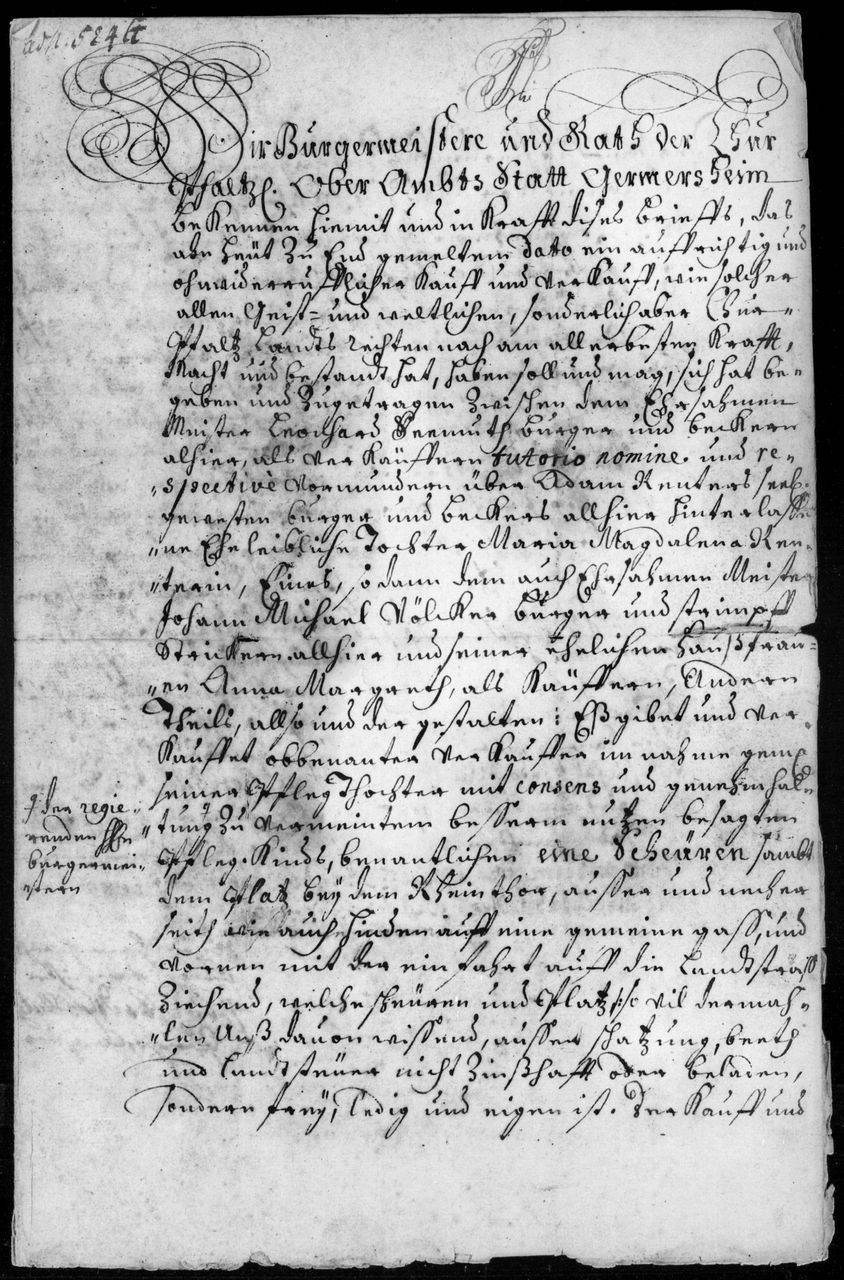 Wir Burgermeistere und Rath der Chur
Pfaltz. Ober Ambts Statt Germersheim
bekennen hiemit und in Krafft dises brieffs, das
an heüt zu End gemeltem dato ein auffrichtig und
ohnwiderrufflicher Kauff und verkauff, wie solcher
allen Geist= und weltlichen, sonderlich aber Chur=
Pfaltz Landts rechten nach am allerbesten Krafft,
Macht und bestandt hat, haben soll und mag, sich hat be=
geben und zugetragen zwischen dem Ehrsahmen
Meister Leonhard Seemuth burger und beckern
alhier, als verkäuffern tutorio nomine und re=
=spective vormundern über Adam Renters seel.
gewesten burger und beckers allhier hinterlasse
=ne Eheleibliche Tochter Maria Magdalena Ren=
=terin, Eines, so dann dem auch Ehrsahmen Meister
Johann Michael Völcker burger und strimpff
Strickern allhier und seiner ehelichen haußfrau=
=en Anna Margreth, als Käuffern, Andern
Theils, allso und der gestalten: Eß gibet und ver=
kauffet obbenanter verkauffer im nahme gem.
seiner Pfleg Thochter mit consens und genehmhal=
=tung zu vermeintem besserm nutzen besagten
Pfleg-Kinds, benantlichen eine Scheüren sambt
dem Platz bey dem Rheinthor, ausser und
seith wie auch hinden auff eine gemeine gass, und
vornen mit der einfahrt auff die Landtstraß
Ziehend, welche scheüren und Platz, so vil dermah=
=len Unß davon wissend, ausser schatzung, beeth
und landtsteüer nicht Zinßhafft oder beladen,
sondern frey, ledig und eigen ist. Der Kauff und
der regie=
renden
burgermei=
stern